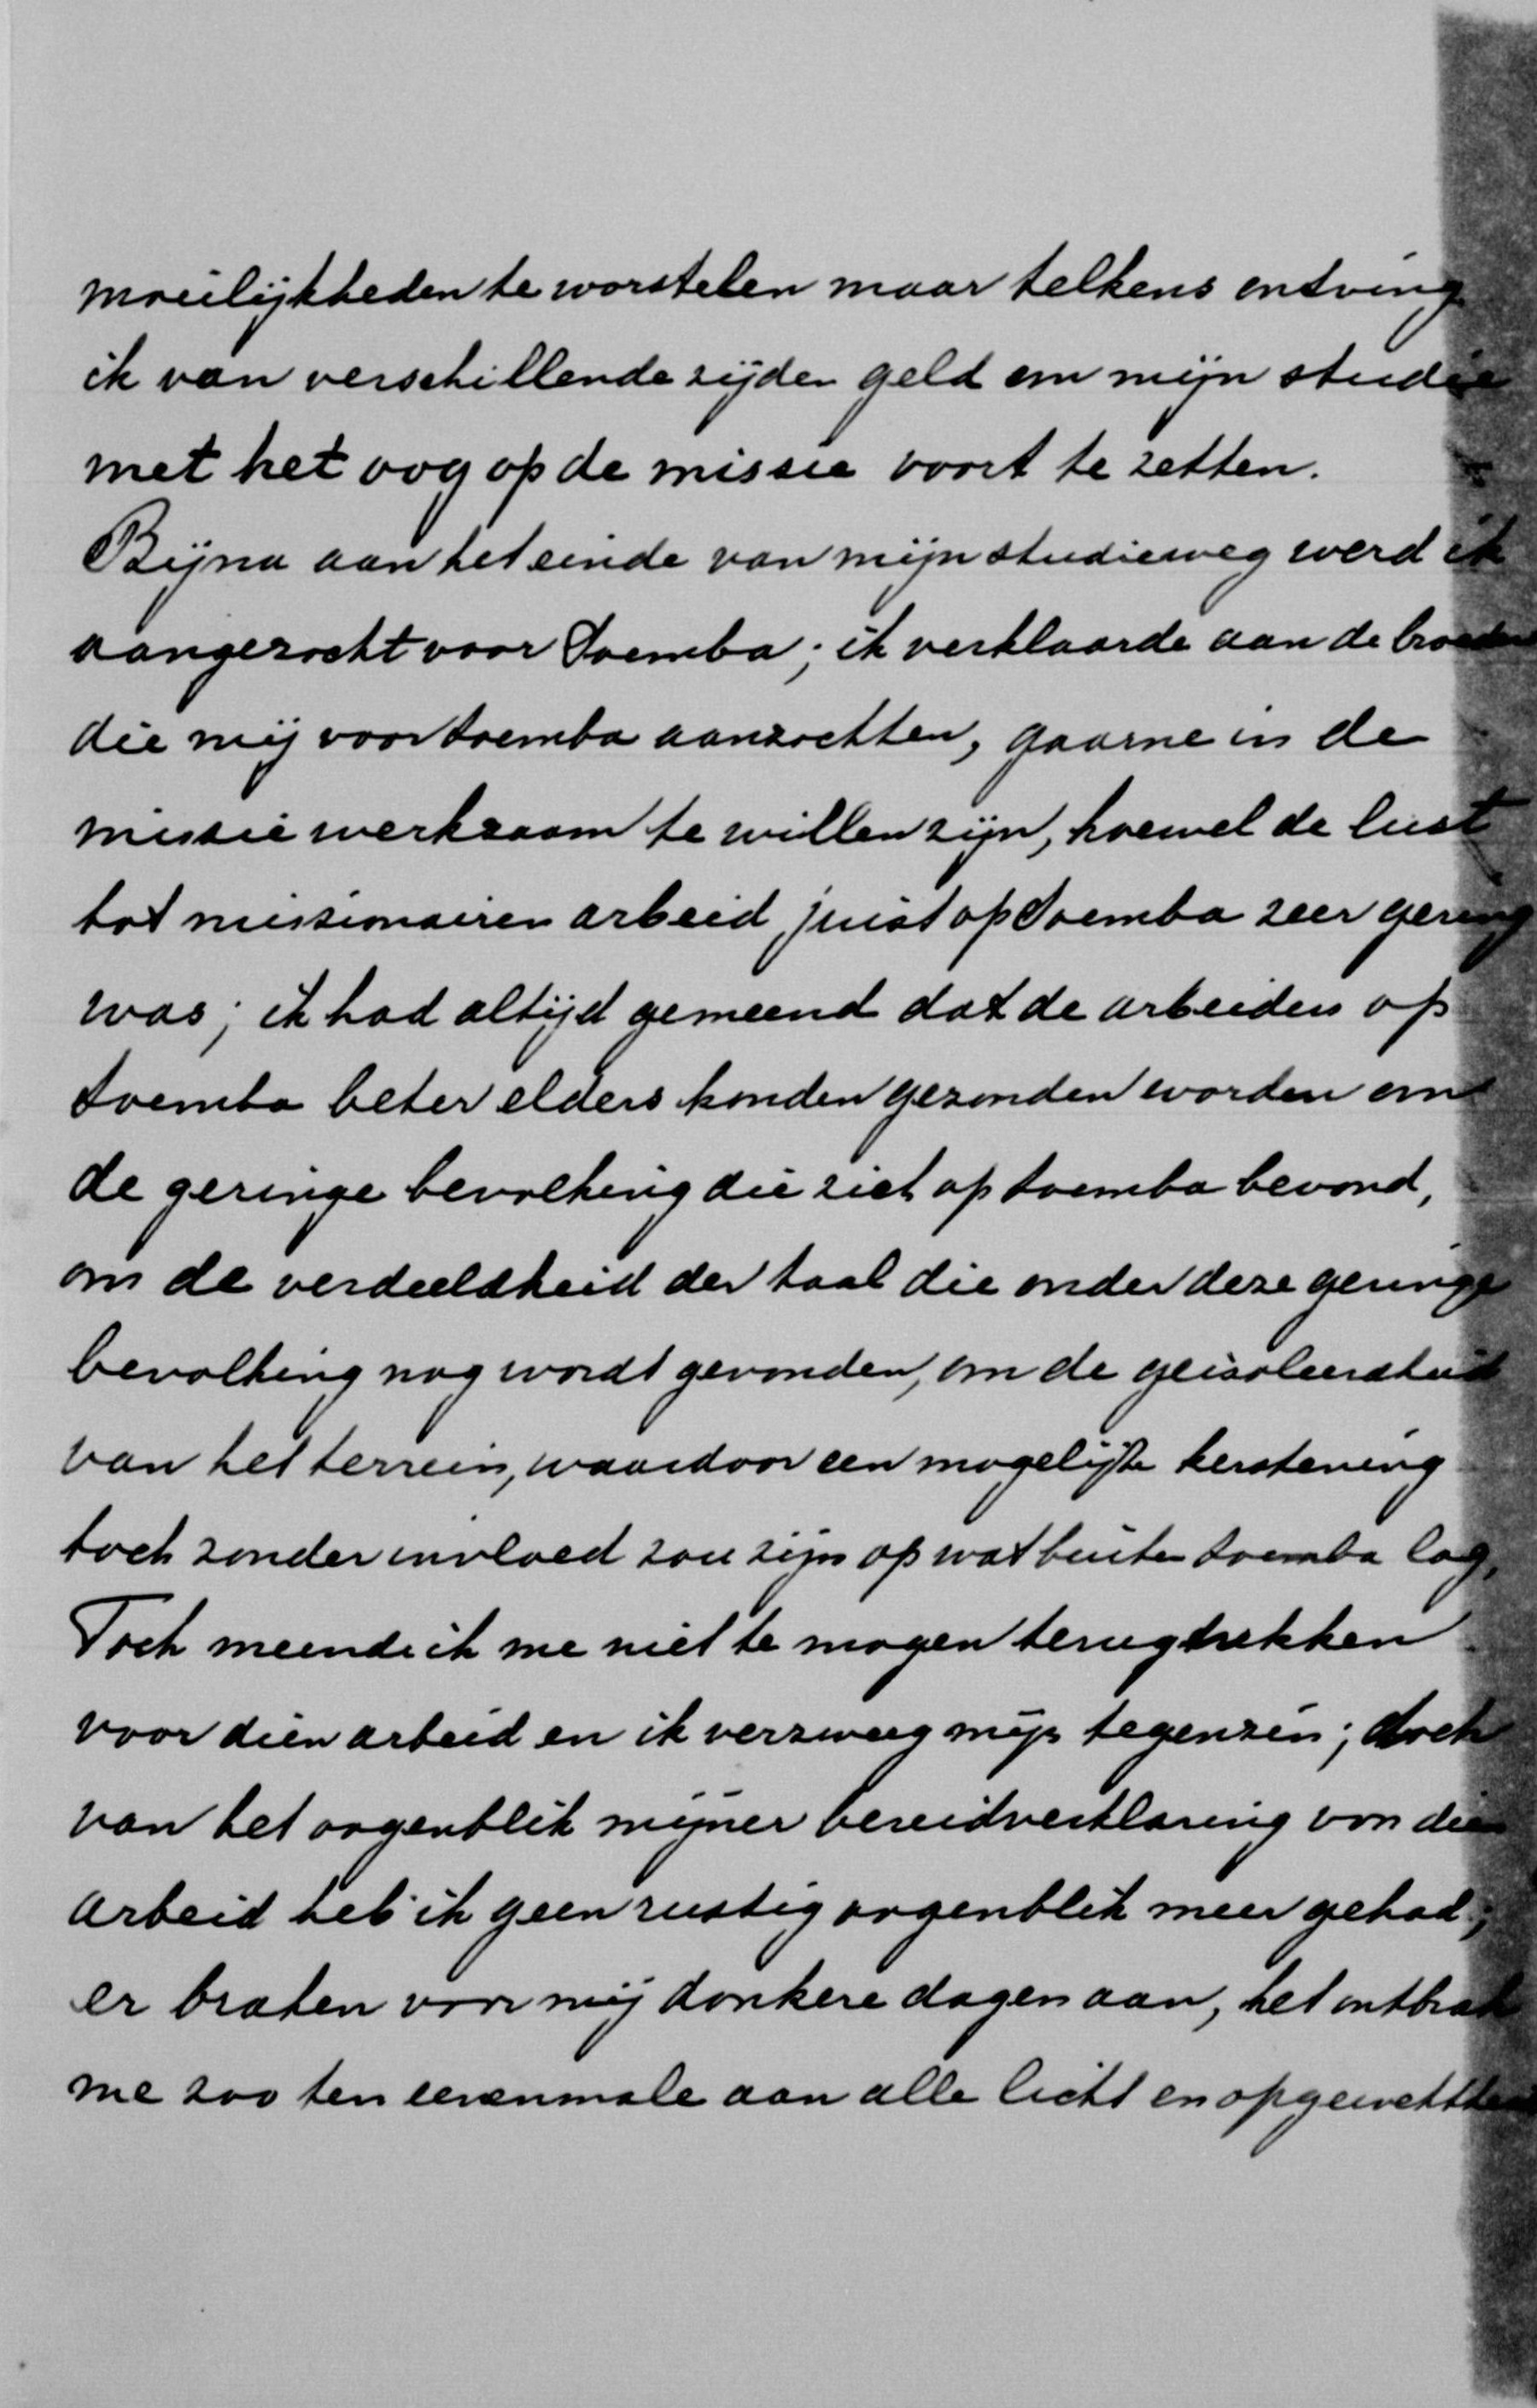 moeilijkheden te worstelen maar telkens ontving
ik van verschillende zijden geld om mijn studie
met het oog op de missie voort te zetten.
Bijna aan het einde van mijn studieweg werd ik
aangezocht voor Soemba; ik verklaarde aan de broeders
die mij voor Soemba aanzochten, gaarne in de
missie werkzaam te willen zijn, hoewel de lust
tot missionairen arbeid juist op Soemba zeer gering
was; ik had altijd gemeend dat de arbeiders op
Soemba beter elders konden gezonden worden om
de geringe bevolking die zich op Soemba bevond,
om de verdeeldheid der taal die onder deze geringe
bevolking nog wordt gevonden, om de geisoleerdheid
van het terrein, waardoor een mogelijke kerstening
toch zonder invloed zou zijn op wat buiten Soemba lag.
Toch meende ik me niet te mogen terugtrekken
voor dien arbeid en ik verzweeg mijn tegenzin; doch
van het oogenblik mijner bereidverklaring van dien
arbeid heb ik geen rustig oogenblik meer gehad;
er braken voor mij donkere dagen aan, het ontbrak
me zoo ten eenenmale aan alle licht en opgewektheid